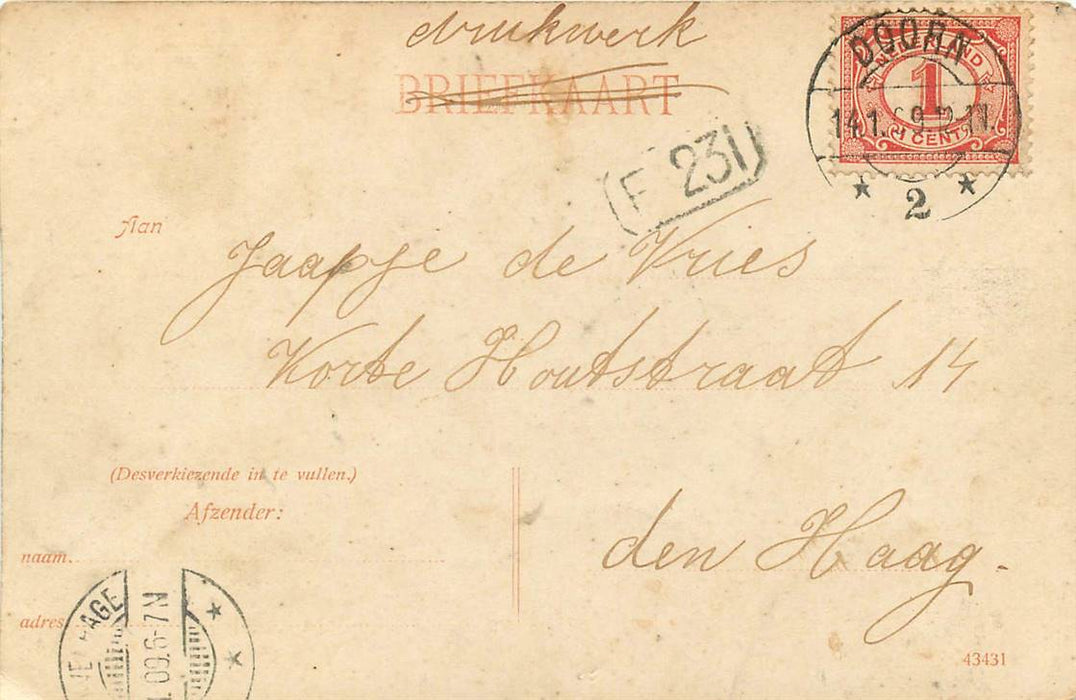 drukwerk
BRIEFKAART
DOORN
NEDERLAND
1
1 CENT
2
F 231
Aan
Jaapje de Vries
Korte Houtstraat 14
den Haag.
(Desverkiezende in te vullen.)
Afzender:
naam.
adres
HAGE
.09.6-7N
43431